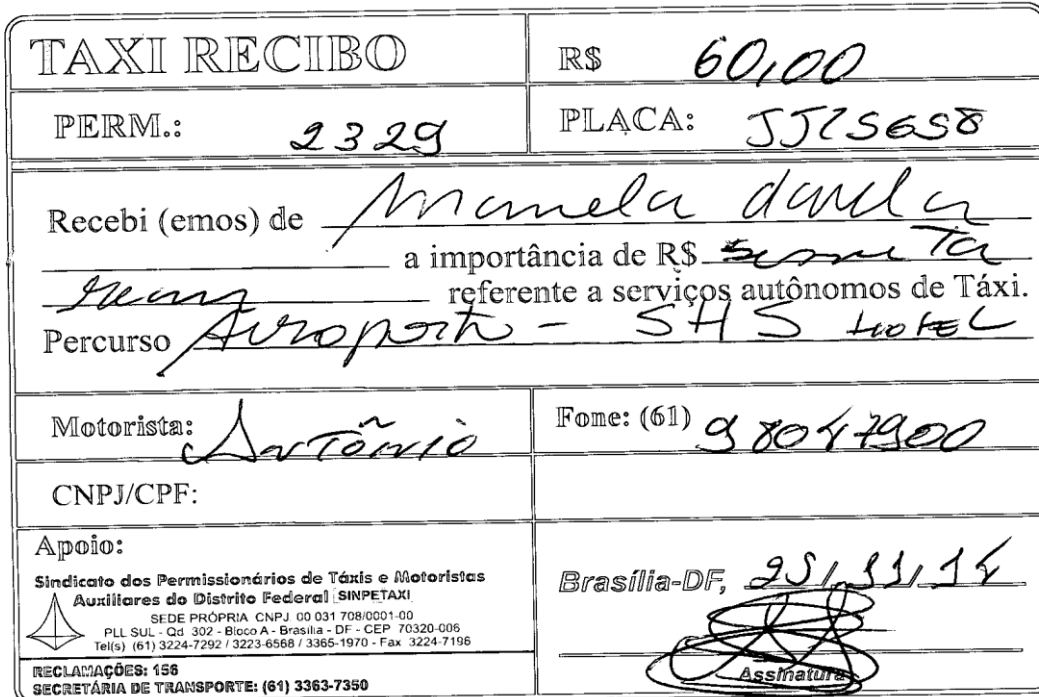 TAXI RECIBO
R$ 60,00
PERM.: 2329
PLACA: JJZ5658
Recebi (emos) de Manuela davila
a importância de R$ sessenta
reais referente a serviços autônomos de Táxi.
Percurso Aeroporto - SHS HOTEL
Motorista: Antônio
Fone: (61)
CNPJ/CPF:
Apoio:
Sindicato dos Permissionários de Táxis e Motoristas
Auxiliares do Distrito Federal SINPETAXI
SEDE PRÓPRIA CNPJ 00 031 708/0001-00
PLL SUL - Qd 302 - Bloco A - Brasília - DF - CEP 70320-006
Tel(s) (61) 3224-7292 / 3223-6568 / 3365-1970 - Fax 3224-7196
RECLAMAÇÕES: 156
SECRETÁRIA DE TRANSPORTE: (61) 3363-7350
Brasília-DF,
Assinatura